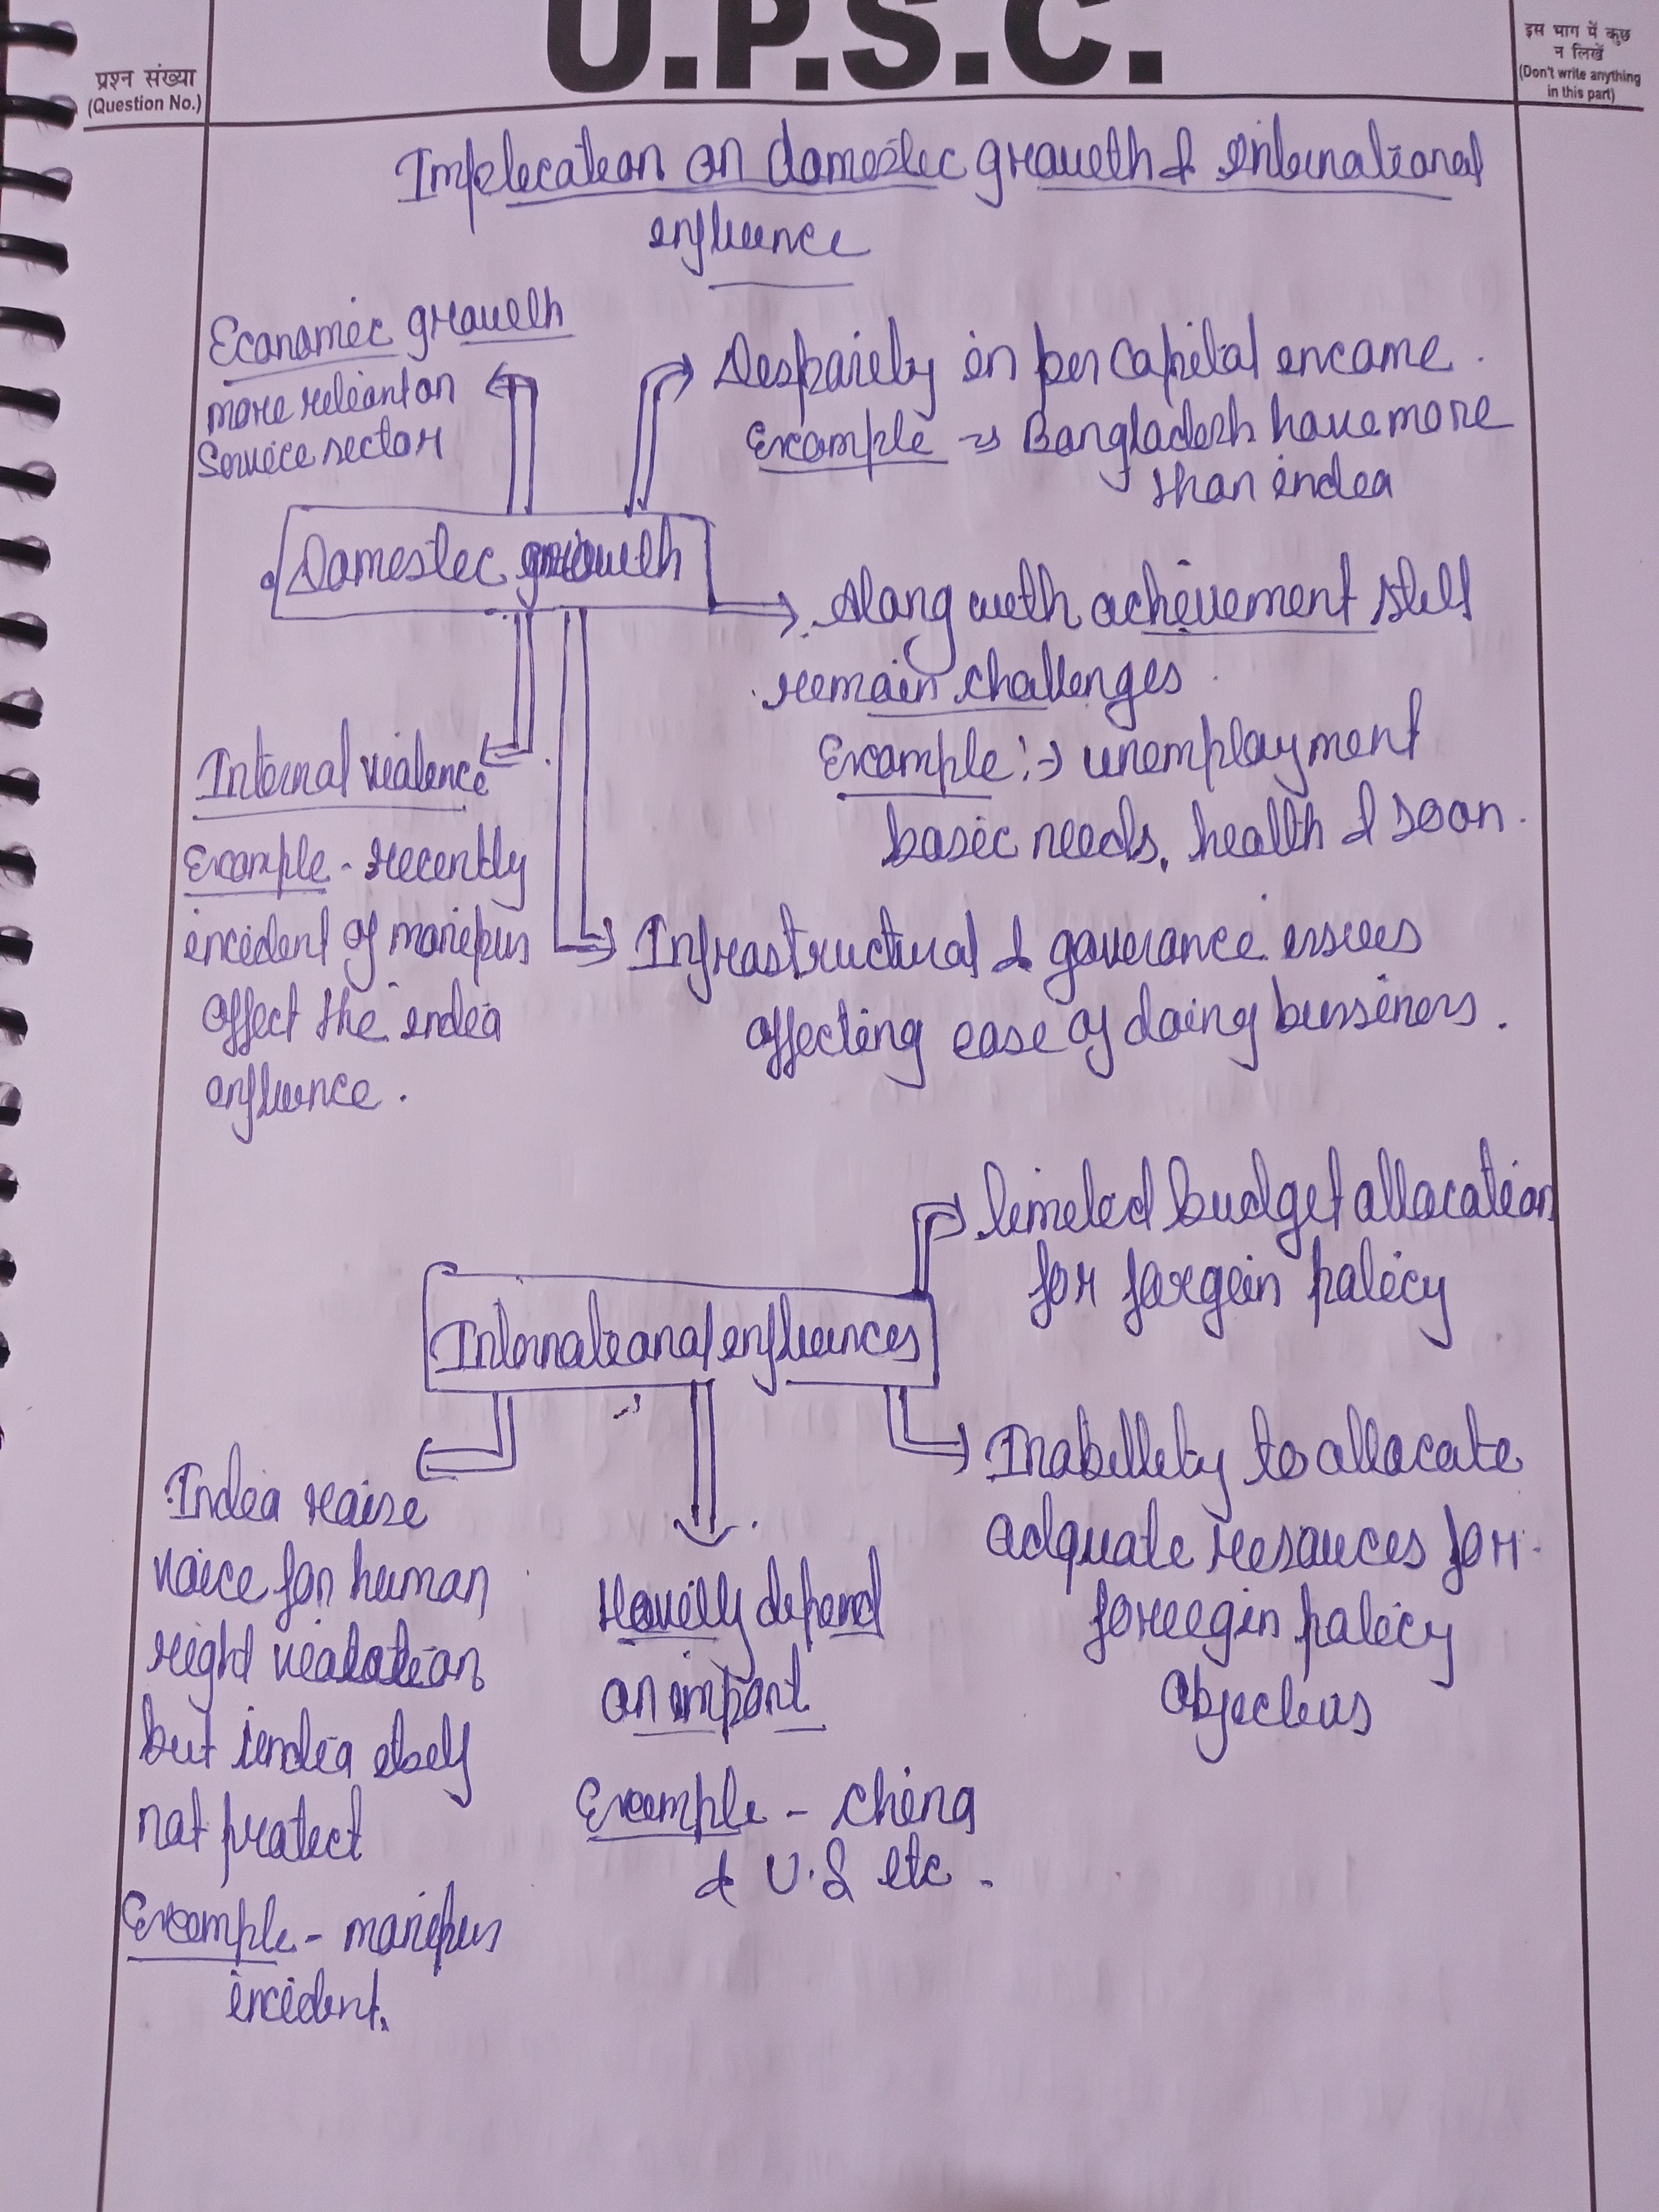 U.P.S.C.
प्रश्न संख्या
(Question No.)
इस भाग में कुछ
न लिखें
(Don't write anything
in this part)
Implecation on domestec growth & international
influence
Economic growth
more reliant on
Service sector
Despairity in per capital encome.
Example → Bangladesh have more
than india
Domestec growth
Along with achievement still
remain challenges
Example :→ unemployment
basic needs, health & soon.
Internal violence
Example - recently
incident of manipur
affect the india
influence.
Infrastructural & goverance issues
affecting ease of doing bussiness.
limited budget allocation
for forgein policy
International influences
Inabillity to allocate
adquate resouces for
foreegin policy
objectivs
India raise
voice for human
right violation
but india itself
not protect
Example - manipur
incident.
Havilly depend
on import
Example - china
& U.S etc.